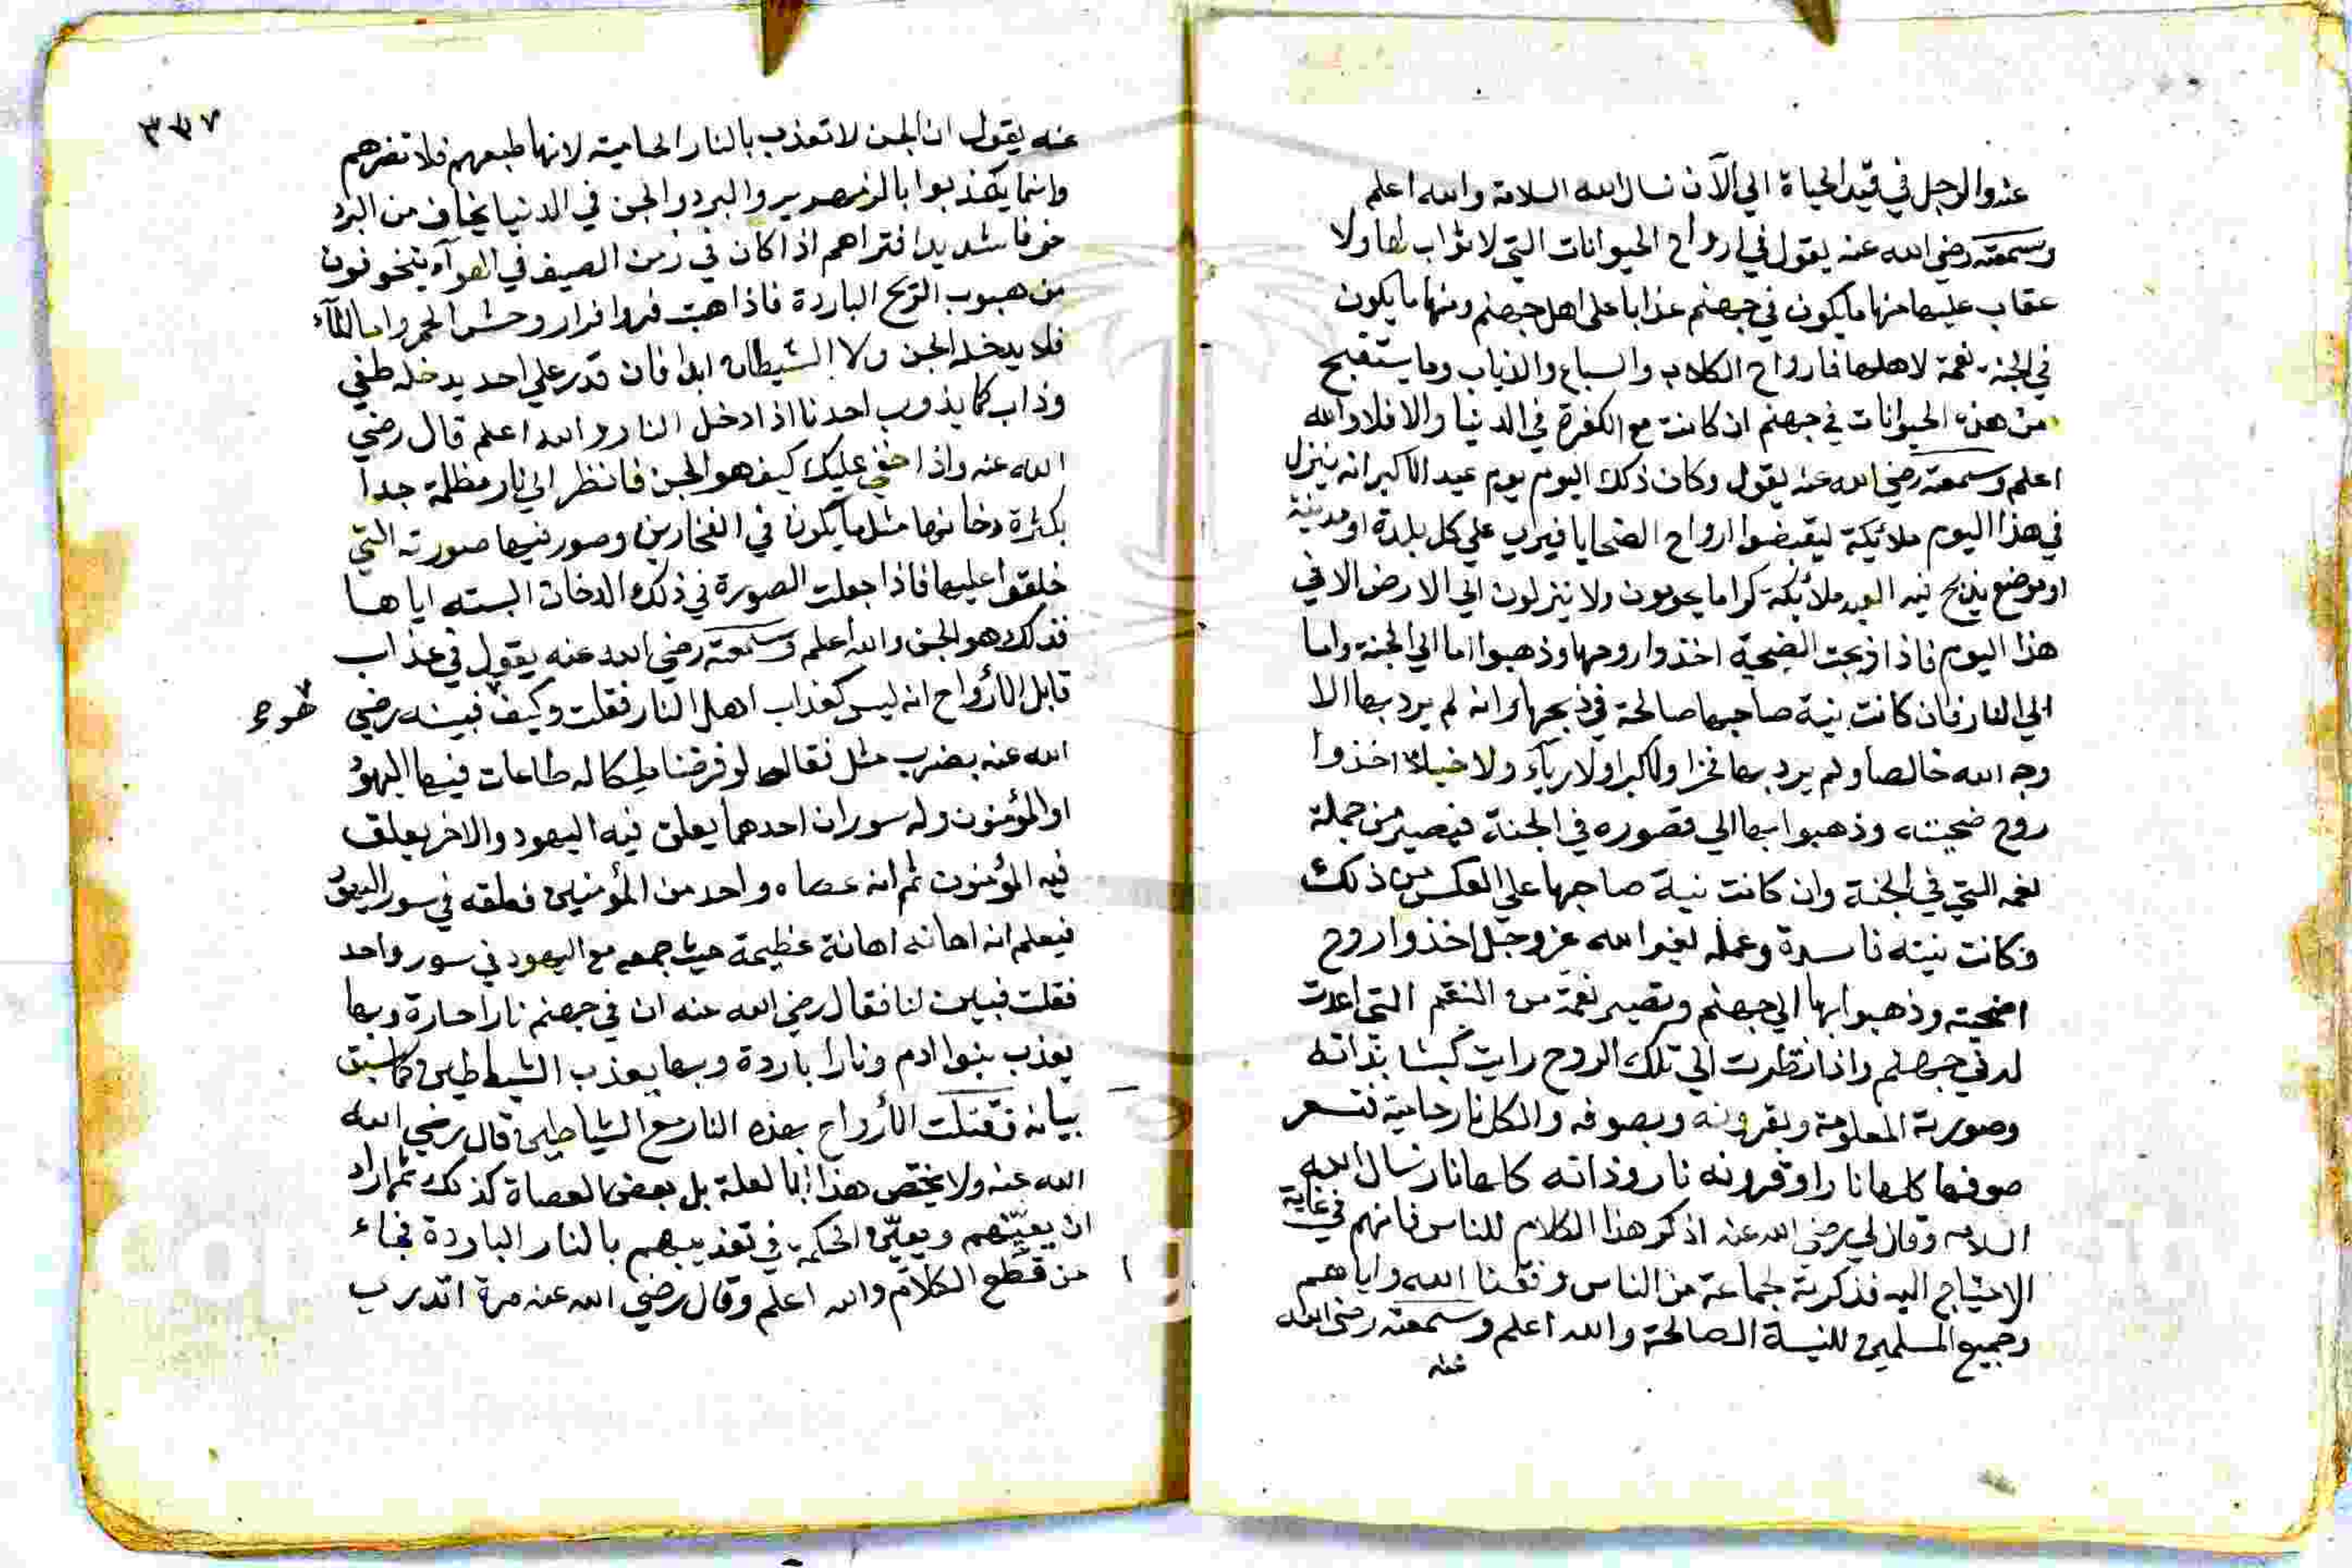 عنه والرجل في قيد الحياة الي الآن نسال الله السلامة والله اعلم
وسمعته رضي الله عنه يقول في ارواح الحيوانات التي لا ثواب لها ولا
عقاب عليها منها ما يكون في جهنم عذابا على اهل جهنم ومنها ما يكون
في الجنة نعمة لاهلها فارواح الكلاب والسباع والذياب وما يستقبح
من هذه الحيوانات في جهنم ان كانت مع الكفرة في الدنيا والا فلا والله
اعلم وسمعته رضي الله عنه يقول وكان ذلك اليوم يوم عيد الاكبر انه ينزل
في هذا اليوم ملائكة ليقبضوا ارواح الضحايا فيري علي كل بلدة او مدينة
او موضع يذبح فيه العيد ملائكة كراما يحومون ولا ينزلون الي الارض الا في
هذا اليوم فاذا ذبحت الضحية اخذوا روحها وذهبوا اما الي الجنة واما
الي النار فان كانت نية صاحبها صالحة في ذبحها وانه لم يرد بها الا
وجه الله خالصا ولم يرد بها فخرا ولا كبرا ولا رياء ولا خيلاء اخذوا
روح ضحيته وذهبوا بها الي قصوره في الجنة فتصير من جملة
نعمه التي في الجنة وان كانت نية صاحبها علي العكس من ذلك
فكانت نيته فاسدة وعمله لغير الله عز وجل اخذوا روح
اضحيته وذهبوا بها الي جهنم وتصير نقمة من النقم التي اعدت
له في جهنم واذا نظرت الي تلك الروح رايت كبشا بذاته
وصورته المعلومة وبقرونه وبصوفه والكل نار حامية فتسعر
صوفها كلها نارا وقرونه نار وذاته كلها نار نسال الله
السلامه وقال لي رضي الله عنه اذكر هذا الكلام للناس فانهم في غاية
الاحتياج اليه فذكرته لجماعة من الناس وفقنا الله واياهم
وجميع المسلمين للنية الصالحة والله اعلم وسمعته رضي الله
عنه
٣٣٧
عنه يقول ان الجن لا تعذب بالنار الحامية لانها طبعهم فلا تضرهم
وانما يعذبوا بالزمهرير والبرد والجن في الدنيا يخاف من البرد
خوفا شديدا فتراهم اذا كان في زمن الصيف في الهوآء يتخوفون
من هبوب الريح الباردة فاذا هبت فروا فرار وحش الحمر واما المآء
فلا يدخله الجن ولا الشيطان ابدا فان قدر علي احد يدخله طفي
وذاب كما يذوب احدنا اذا دخل النار والله اعلم قال رضي
الله عنه واذا خفي عليك كيف هو الجن فانظر الي نار مظلمة جدا
بكثرة دخانها مثل ما يكون في الفخارين وصور فيها صورته التي
خلقوا عليها فاذا جعلت الصورة في ذلك الدخان البسته اياها
فذلك هو الجن والله اعلم وسمعته رضي الله عنه يقول في عذاب
قابل الأرواح انه ليس كعذاب اهل النار فقلت وكيف فبينه رضي
الله عنه بضرب مثل فقال لو فرضنا ملكا له طاعات فيها اليهود
او المؤمنون وله سوران احدهما يعلق فيه اليهود والاخر يعلق
فيه المؤمنون ثم انه عصاه واحد من المؤمنين فعلقه في سور اليهود
فيعلم انه اهانه اهانة عظيمة حيث جمعه مع اليهود في سور واحد
فقلت فبين لنا فقال رضي الله عنه ان في جهنم نارا حارة وبها
يعذب بنوا ادم ونارا باردة وبها يعذب الشياطين كما سبق
بيانه الأرواح بهذه النار مع الشياطين قال رضي الله
الله عنه ولا يختص هذا بل بعض العصاة كذلك ثم اراد
ان يعينهم ويعين الحكمة في تعذيبهم بالنار الباردة فجاء
من قطع الكلام والله اعلم وقال رضي الله عنه مرة اتدري